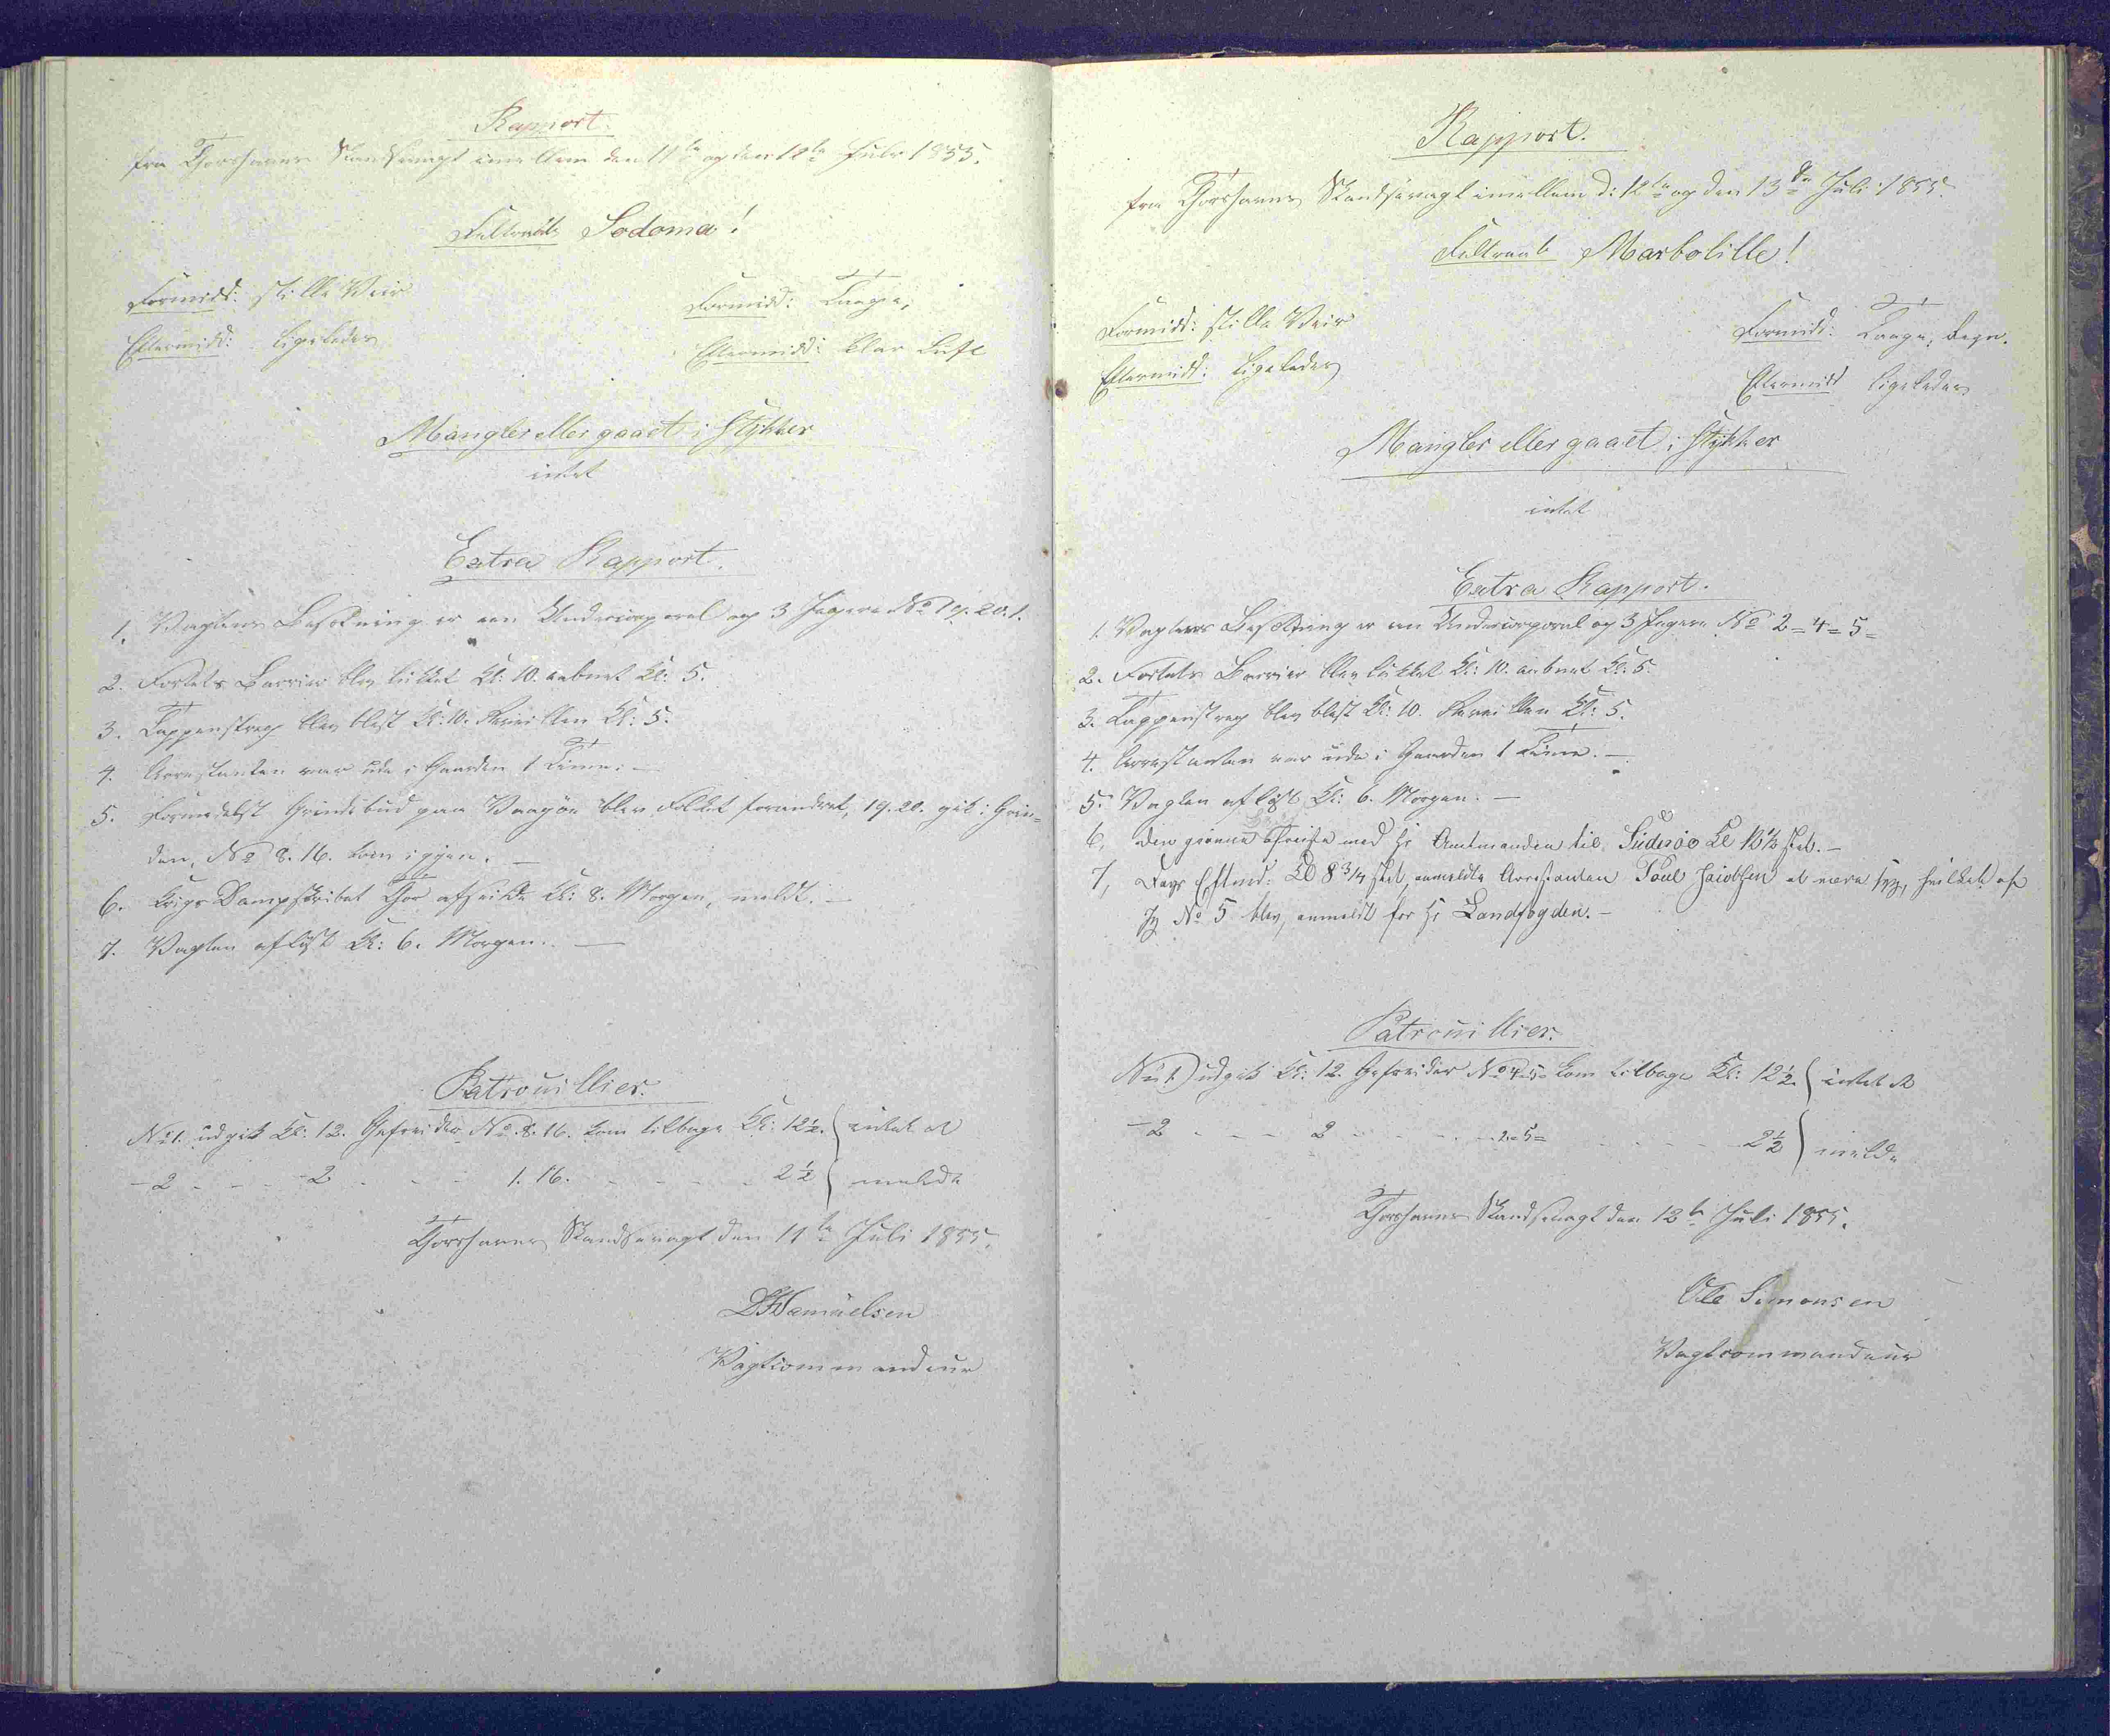 Rapport.
fra Thorshavns Skandsevagt imellem den 11te og den 12te Juli 1855.
Feltraab Sodoma!
Formidd: stille Veir
Formidd: Taage,
Eftermidd: ligeledes
Eftermidd: klar Luft
Mangler eller gaaet i Stykker
intet
Extra Rapport.
1. Vagtens Besætning er en Undercorporal og 3 Jægere No 19. 20. 1.
2. Fortets Barrier blev lukket Kl: 10. aabnet Kl: 5.
3. Tappenstreg blev blæst Kl: 10. Reveillen Kl: 5.
4. Arrestanten var ude i Gaarden 1 Time. —
5. Formedelst Grindebud paa Vaagøe blev Folket forandret, 19. 20. gik i Grin=
den, No 8. 16. kom igjen. —
6. Krigs Dampskibet Thor afseilede Kl: 8. Morgen, meldt. —
7. Vagten afløst Kl: 6. Morgen. —
Patrouillier.
No 1. udgik Kl: 12. Gefreider No. 8. 16. kom tilbage Kl: 12½. intet at
- 2 - - - 2 - - - 1. 16. - - - - 2½ melde
Thorshavns Skandsevagt den 11te Juli 1855.
Samuelsen
Vagtcommandeur
Rapport.
fra Thorshavns Skandsevagt imellem d: 12te og den 13de Juli 1855.
Feltraab Marbolille!
Formidd: stille Veir
Formidd: Taage, Regn.
Eftermidd: ligeledes
Eftermidd ligeledes
Mangler eller gaaet i Stykker
intet
Extra Rapport.
1. Vagtens Besætning er en Undercorporal og 3 Jægere No 2=4=5=
2. Fortets Barrier blev lukket Kl: 10. aabnet Kl: 5.
3. Tappenstreg blev blæst Kl: 10. Reveillen Kl: 5.
4. Arrestanten var ude i Gaarden 1 Time. —
5. Vagten afløst Kl: 6. Morgen. —
6, Den afreiste med Hr Amtmanden til Suderöe Kl 10½ Slet. —
7, Dags Eftmd: Kl 8¾ Slet, anmeldte Arrestanten Poul Jacobsen at være syg, hvilket af
Jg No 5 blev, anmeldt for Hr Landfogden. —
Patrouillier.
No 1) udgik Kl: 12. Gefreider No 4=5= kom tilbage Kl: 12½ intet at
- 2 - - - 2 - - - 2=5= - - - - 2½ melde
Thorshavns Skandsevagt den 12te Juli 1855.
Ole Simonsen
Vagtcommandeur